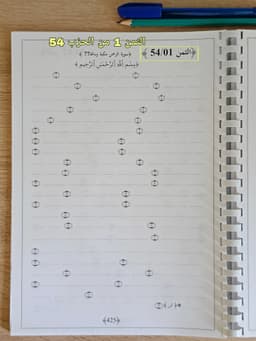 الثمن 1 من الحزب 54
الثمن 54/01
﴿سورة الرحمن مكية وءاياتها ٧٧﴾
﴿بِسْمِ اللَّهِ الرَّحْمَٰنِ الرَّحِيمِ﴾
﴿425﴾